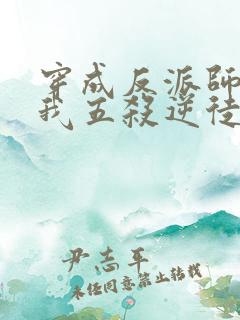 穿成反派師
我五殺逆徒
尹志平
未經同意禁止轉載